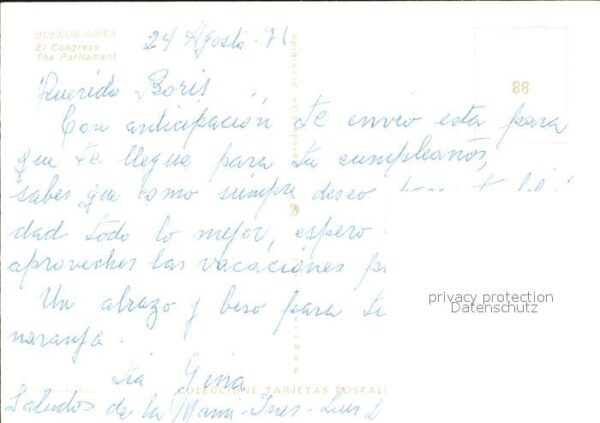 BUENOS AIRES
El Congreso
The Parliament
24 Agosto - 71
Querido Boris
Con anticipación te envio esta para
que te llegue para tu cumpleaños,
sabes que como siempre deseo
dad todo lo mejor, espero
aproveches las vacaciones
Un abrazo y beso para te
naranja.
tia Gina
Saludos de la Mami - Ines - Luis
COLECCIONE TARJETAS POSTALE
reproducción prohibida
88
privacy protection
Datenschutz